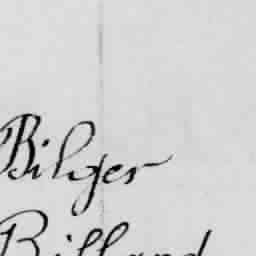 Bilger
Billard